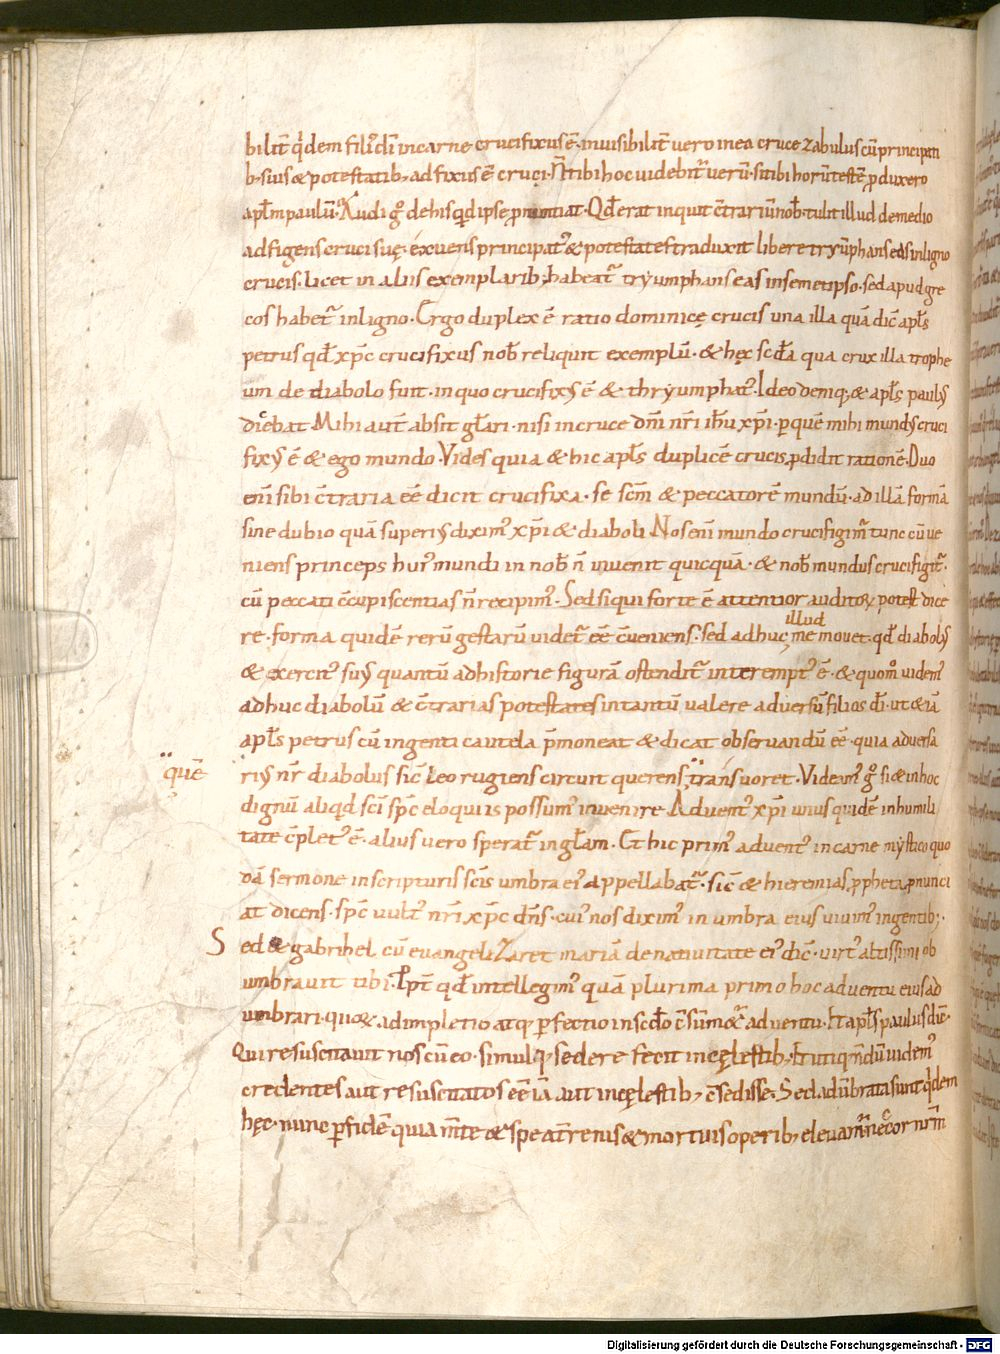 bilit̄ q̇dem fili᷒ dī in carne crucifixus ē· inuisibilit̄ uero in ea cruce zabulus cū principatı
b; suis & potestatib; adfixus ē cruci· Nr̄ tibi hoc uidebit᷑ uerū· si tibi horū testē ꝓduxero
apl̄m paulū· Audi gͦ de his qd̄ ipse ꝓnuntiat· Qd̄ erat inquit c̄trariū nob̄· tulit illud de medio
adfigens cruci suę· exuens principat᷒ & potestates traduxit libere tryūphans eas in ligno
crucis· licet in aliis exemplarib; habeat᷑ tryumphans eas in semetipso· sed apud gre
cos habet᷑ in ligno· Ergo duplex ē ratio dominicę crucis una illa quā dic̄ apl̄s
petrus qd̄ xp̄c crucifixus nob̄ reliquit exemplū· & hęc scd̄a qua crux illa trophe
um de diabolo fuit· in quo crucifixꝰ ē & thryumphat᷒· Ideo demq; & apl̄s paulꝰ
dicebat· Mihi aut̄ absit gl̄ari· nisi in cruce dn̄i nr̄i ihū xp̄i· ꝑ quē mihi mundꝰ cruci
fixꝰ ē & ego mundo· Vides quia & hic apl̄s duplicē crucis ꝓdidit rationē· Duo
enī sibi c̄traria eē dicit crucifixa· se sc̄m & peccatorē mundū· ad illā formā
sine dubio quā superiꝰ dixim᷒ xp̄i & diaboli· Nos enī mundo crucifigim᷑ tunc cū ue
niens princeps hui᷒ mundi in nob̄ n̄ inuenit quicquā· & nob̄ mundus crucifigit᷑·
cū peccati c̄cupiscentias n̄ recipim᷒· Sed si qui forte ē attentior auditoꝝ potest dice
re· forma quidē rerū gestarū uidet᷑ eē c̄ueniens· sed adhuc me mouet· qd̄ diabolꝰ
illud
& exercit᷒ suꝰ quantū ad historie figurā ostendit᷑ interempt᷒ ē· & quom̊ uidem᷒
adhuc diabolū & c̄trarias potestates in tantū ualere aduersū filios dī· ut & iā
apl̄s petrus cū ingenti cautela p̄moneat & dicat obseruandū eē· quia aduersa
quē
riꝰ nr̄ diabolus sic̄ leo rugiens circuit querens trānsuoret· Videam᷒ gͦ si & in hoc
dignū aliqd̄ sc̄i sp̄c eloquiis possum᷒ inuenire· Aduent᷒ xp̄i unus quidē in humili
tate c̄plet᷒ ē· alius uero sperat᷑ in gl̄am· Et hic prim᷒ aduent᷒ in carne mystico quo
dā sermone in scripturis sc̄is umbra ei᷒ appellabat᷑· sic̄ & hieremias ꝓpheta ꝓnunci
at dicens· sp̄c uult᷒ nr̄i xp̄c dn̄s· cui᷒ nos dixim᷒ in umbra eius uiuim᷒ in gentib;·
Sed & gabrihel cū euangelizaret mariā de natiuitate ei᷒ dic̄· uirt᷒ altissimi ob
umbrauit tibi· Ppt̄ qd̄ intellegim᷒ quā plurima primo hoc aduentu eius ad
umbrari· quoꝝ adimpletio atq; ꝑfectio in scd̄o c̄sūmet᷑ aduentu· Et apl̄s paulus dic̄·
Qui resuscitauit nos cū eo· simulq; sedere fecit in cęlestib;· Et utiq; nondū uidem᷒
credentes aut resuscitatos eē iā aut in cęlestib; c̄sedisse· Sed adūbrata sunt q̇dem
hęc· nunc ꝑ fidē quia m̄te & spe a tr̄renis & mortuis operib; eleuam᷑ nec̄ cor nr̄m